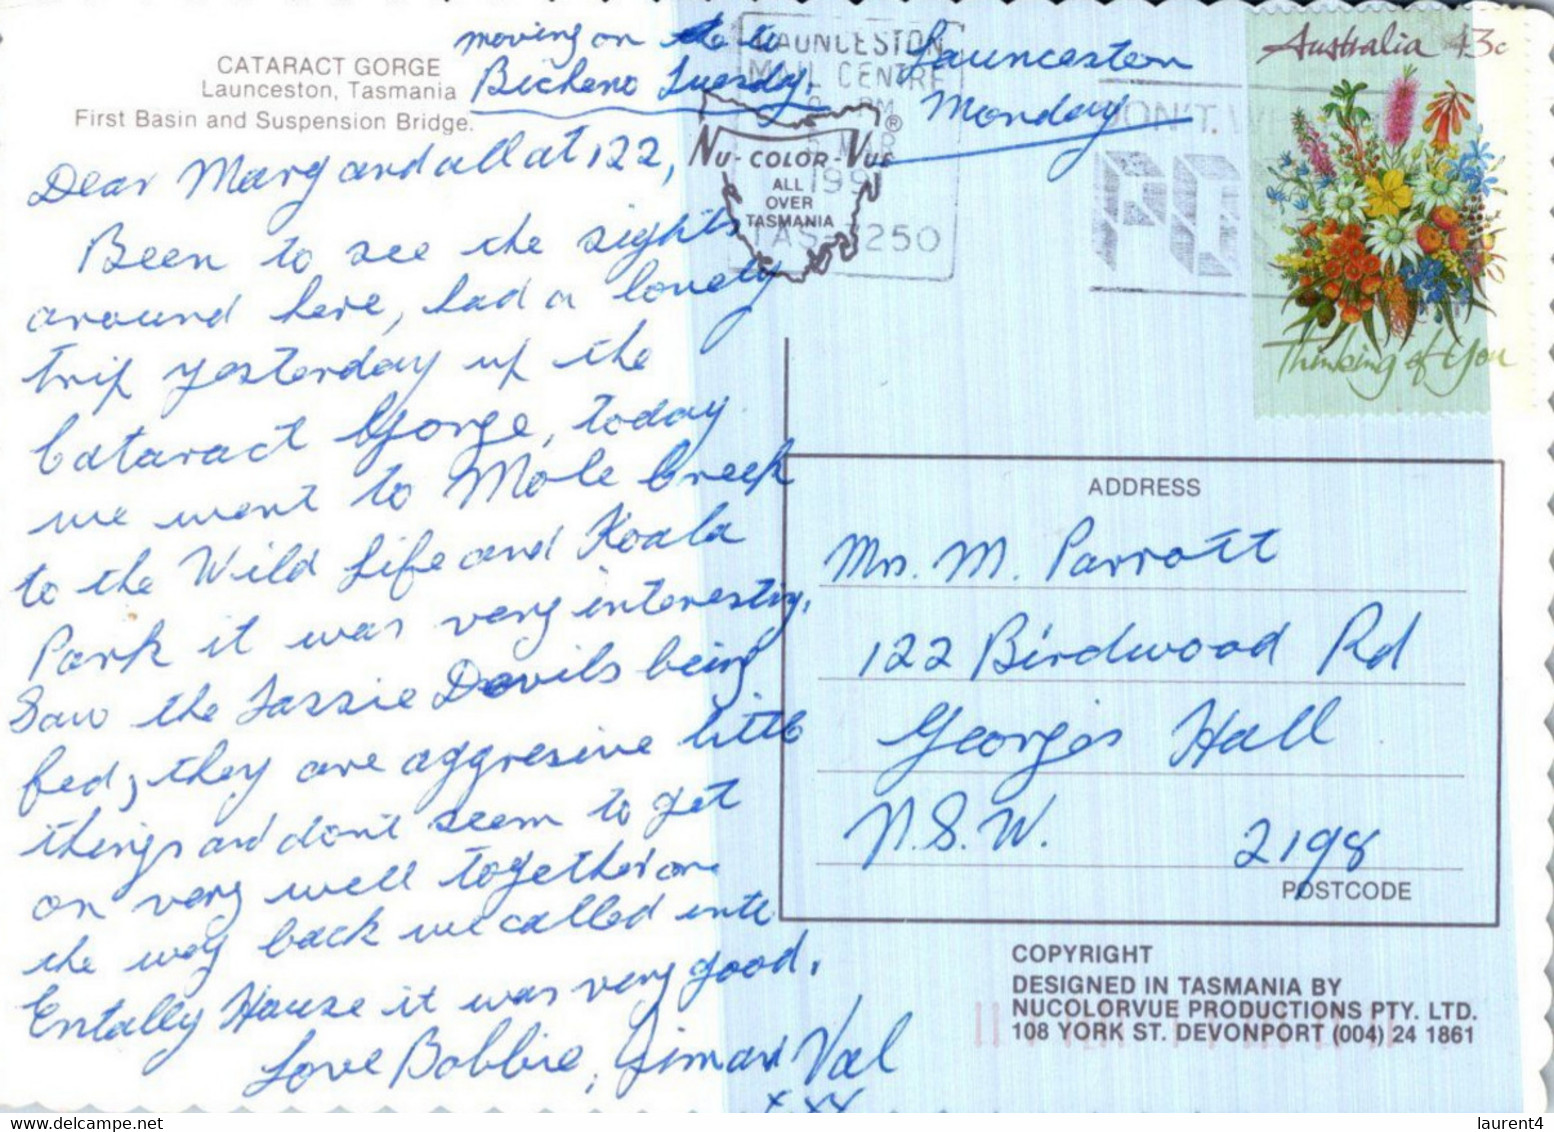 CATARACT GORGE
Launceston, Tasmania
First Basin and Suspension Bridge.
moving on to
Bicheno Tuesdy.
Launceston
Monday
LAUNCESTON
MAIL CENTRE
PM
5 MAR
199
TAS 7250
NU-COLOR-VUE ®
ALL
OVER
TASMANIA
DON'T
PO
Australia 43c
Thinking of You
Dear Marg and all at 122,
Been to see the sights
around here, had a lovely
trip yesterday up the
Cataract Gorge, today
we went to Mole Creek
to the Wild Life and Koala
Park it was very interestig.
Saw the Tassie Devils being
fed, they are aggresive little
things and don't seem to get
on very well together on
the way back we called into
Entally House it was very good.
Love Bobbie, Jim and Val
x xx
ADDRESS
Mrs. M. Parrott
122 Birdwood Rd
Georges Hall
N.S.W. 2198
POSTCODE
COPYRIGHT
DESIGNED IN TASMANIA BY
NUCOLORVUE PRODUCTIONS PTY. LTD.
108 YORK ST. DEVONPORT (004) 24 1861
www.delcampe.net
laurent4